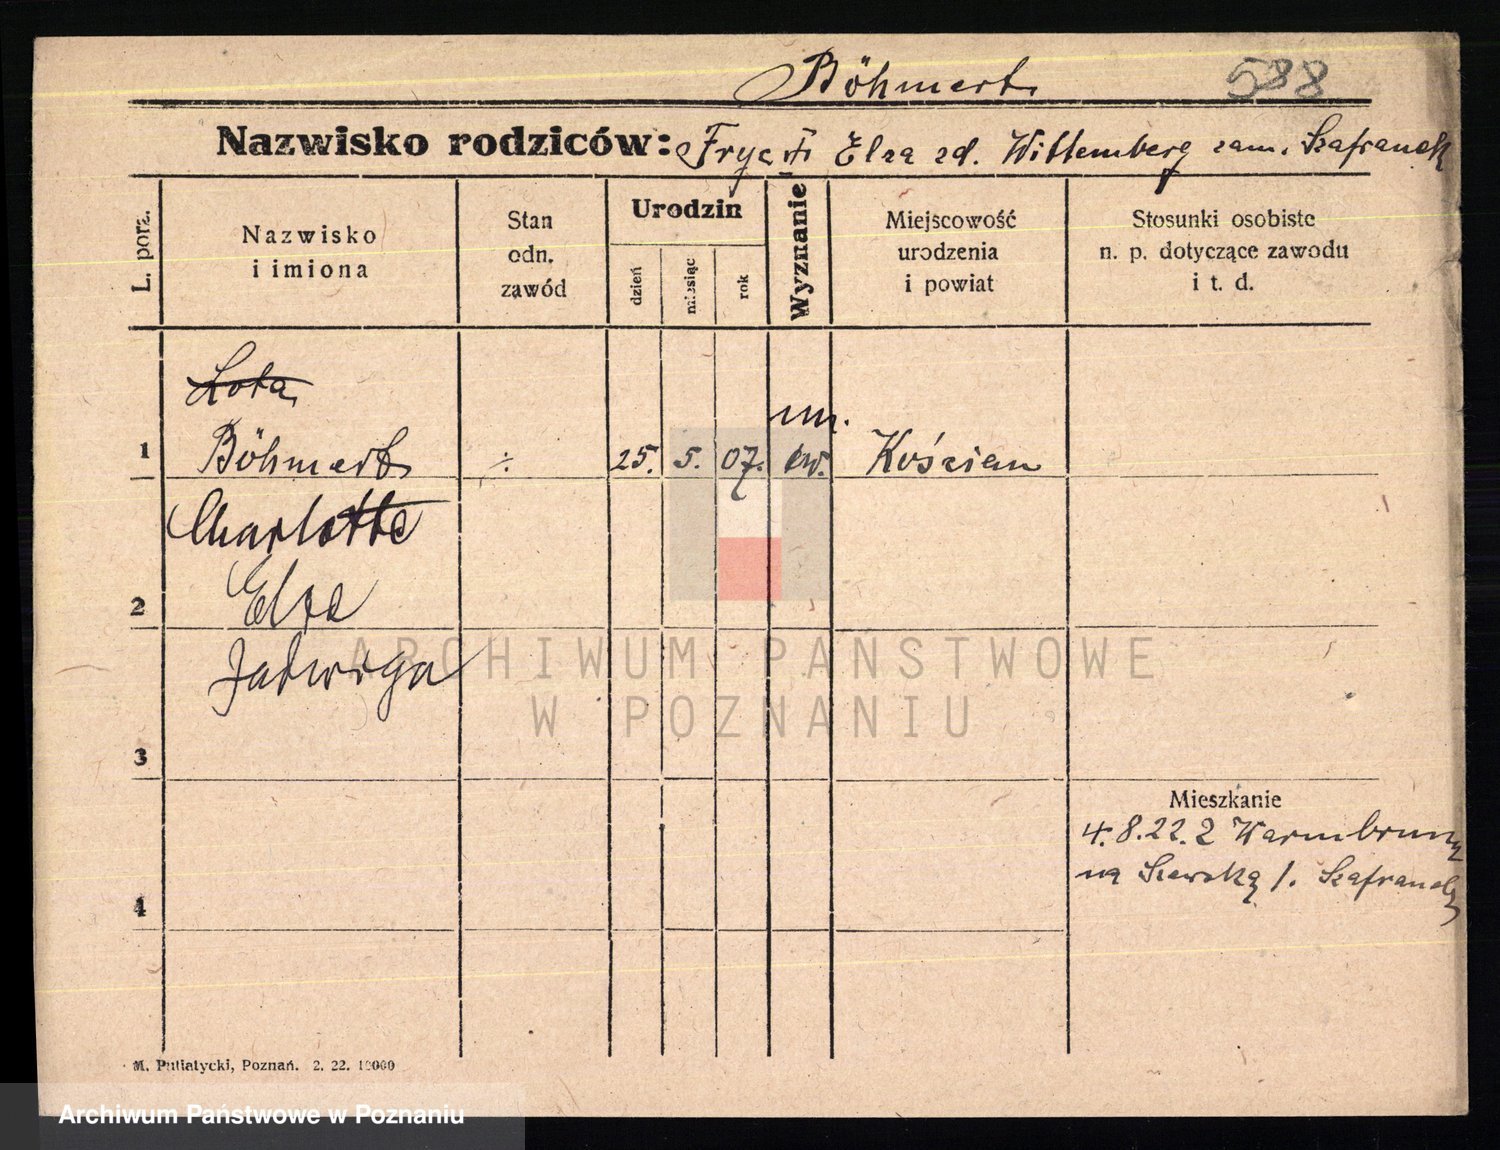 Böhmert
588
Nazwisko rodziców: Fryc i Elza zd. Wittemberg zam. Szafranek
L. porz.
Nazwisko
i imiona
Stan
odn.
zawód
Urodzin
dzień
miesiąc
rok
Wyznanie
Miejscowość
urodzenia
i powiat
Stosunki osobiste
n. p. dotyczące zawodu
i t. d.
Lota
1 Böhmert ÷ 25. 5. 07. ew. Kościan
Charlotte
2 Elze
Jadwiga
ARCHIWUM PAŃSTWOWE
W POZNANIU
3
Mieszkanie
4.8.22. z Warmbrunn
na Szewską /. Szafranek
4
M. Putiatycki, Poznań. 2. 22. 10000
Archiwum Państwowe w Poznaniu